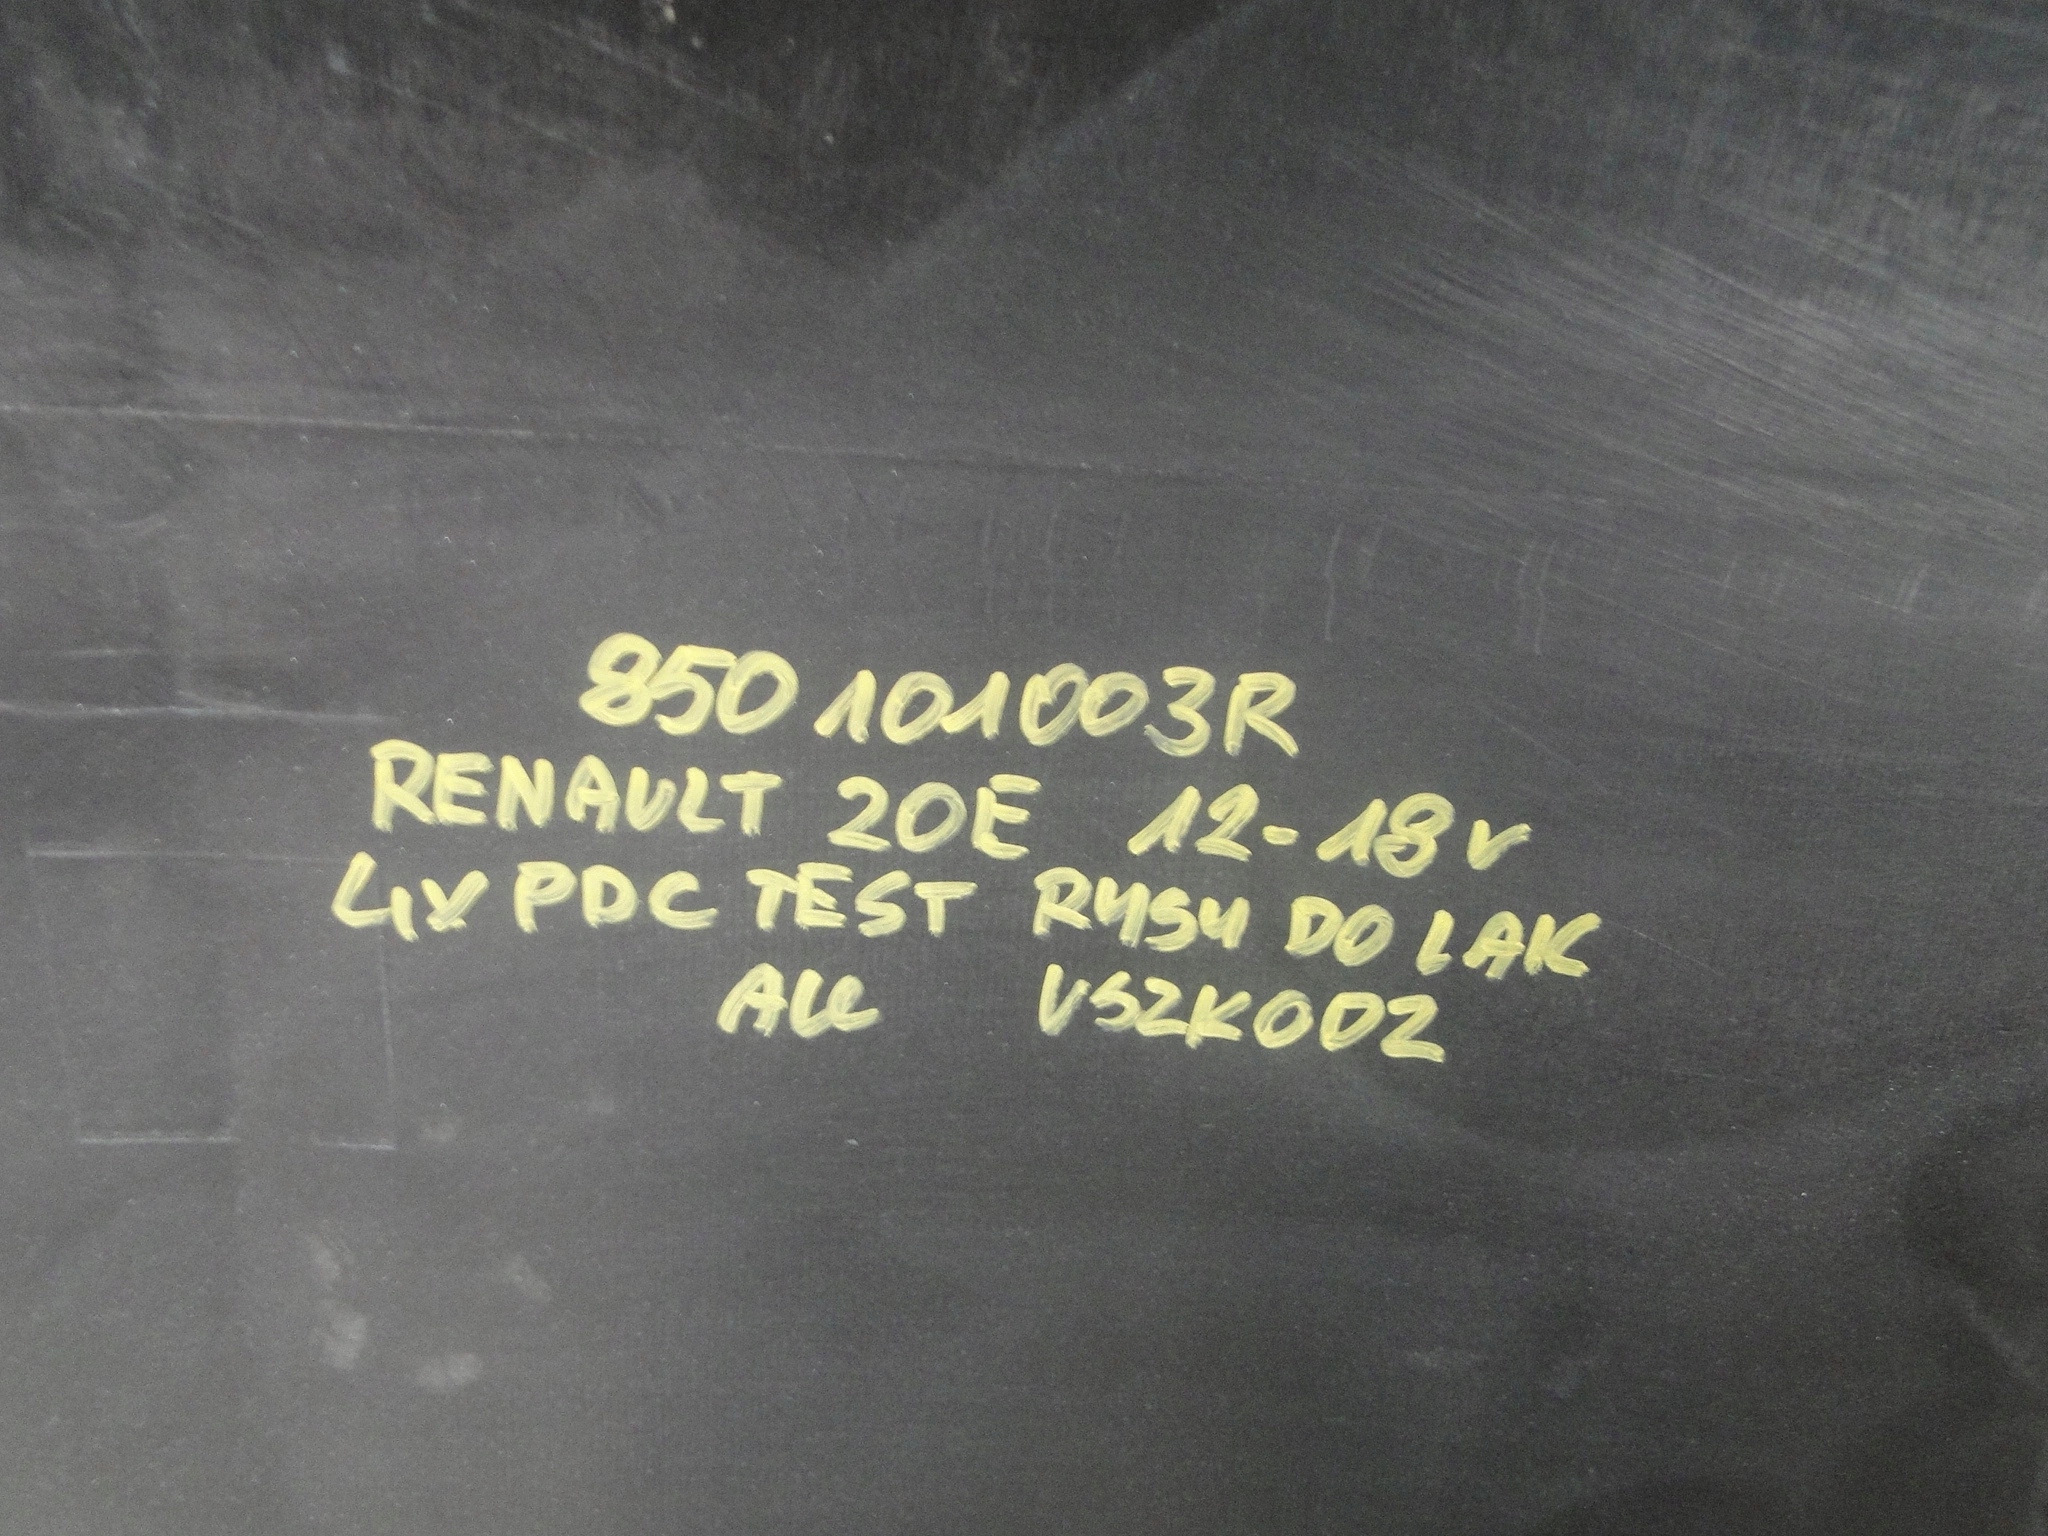 850101003R
RENAULT 20E 12-18r
4xPDC TEST RYSY DO LAK
ALL USZKODZ